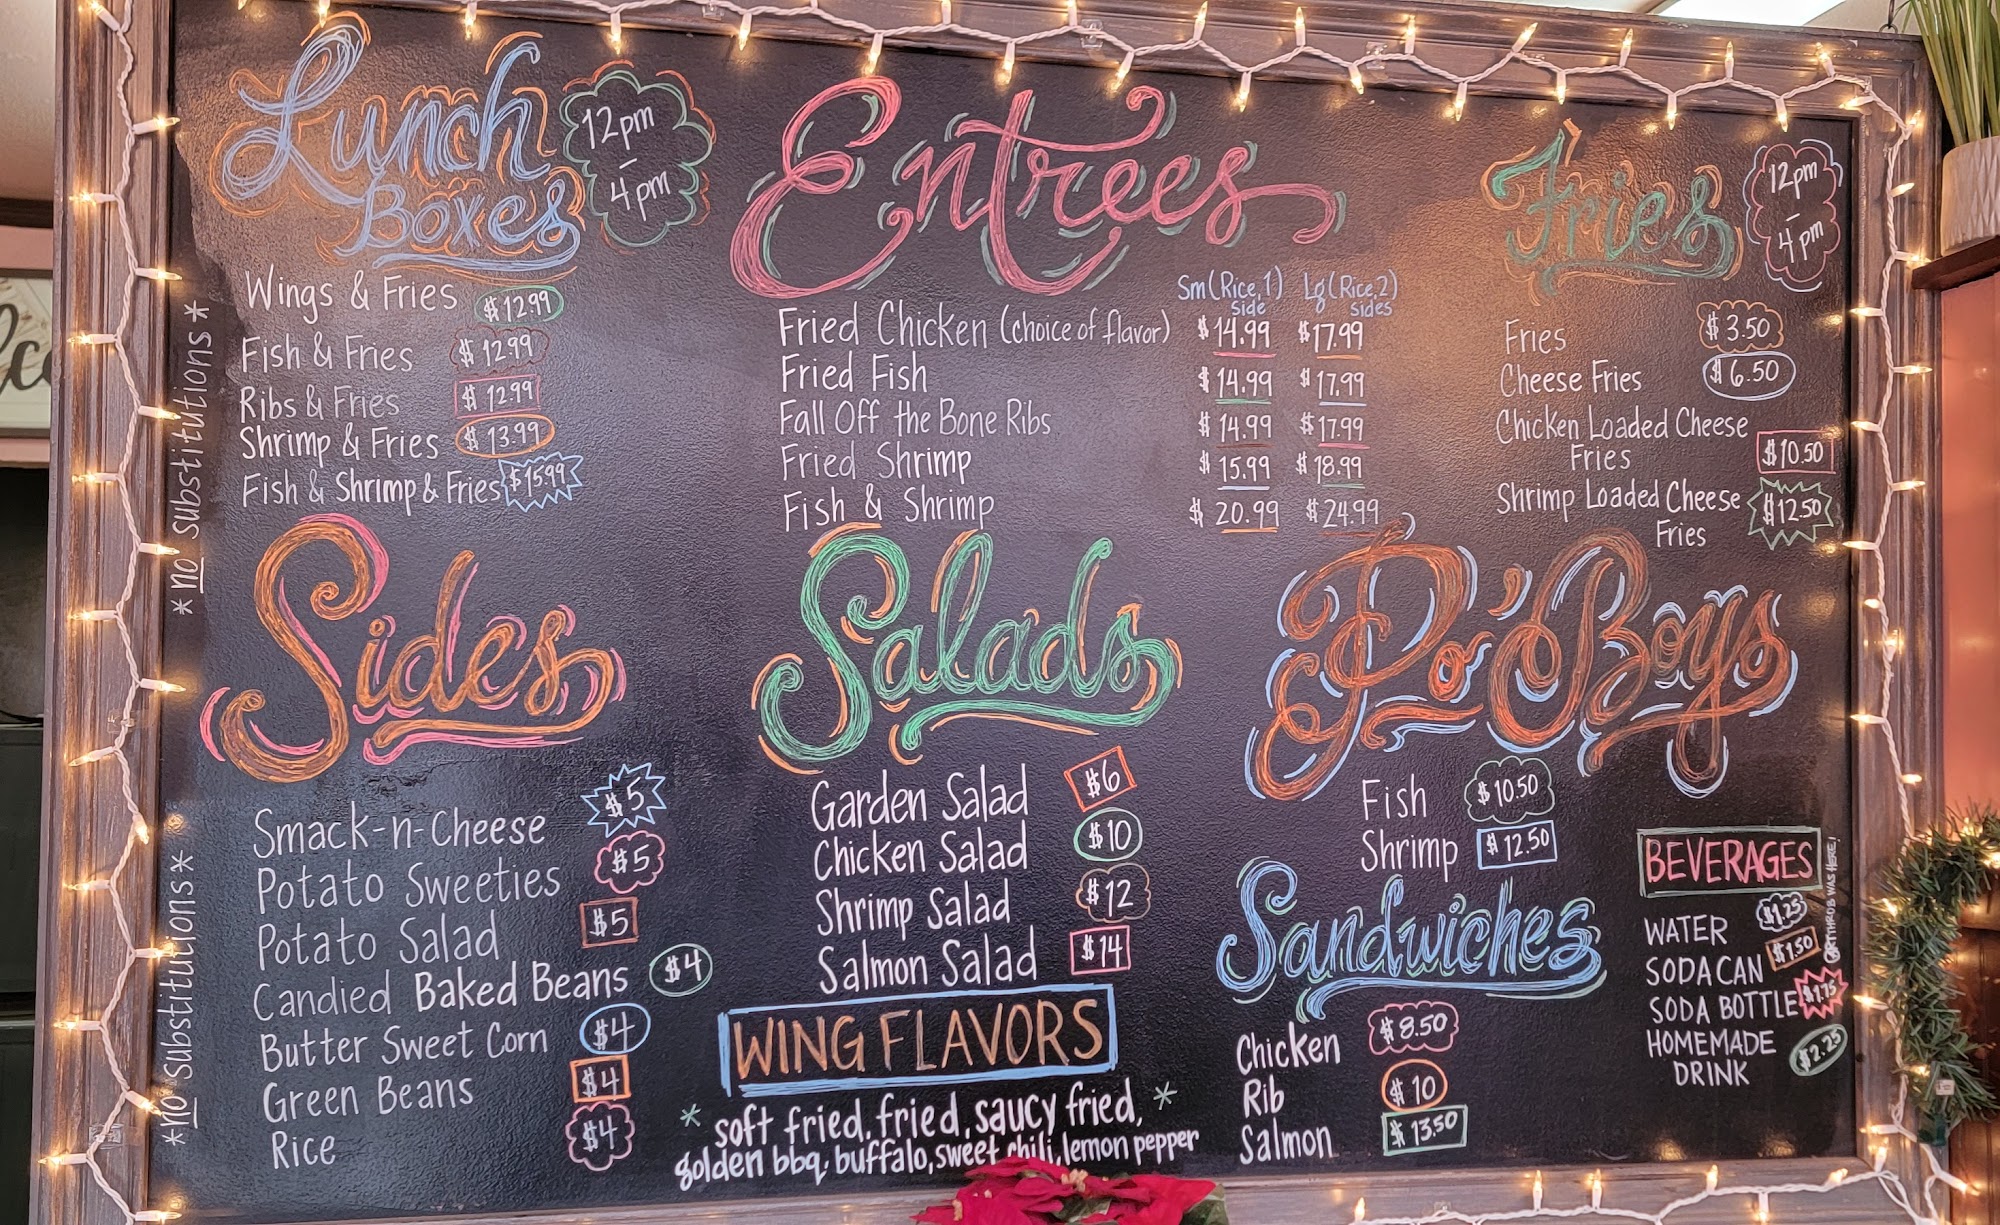 Lunch
Boxes
12pm
-
4pm
Wings & Fries $12.99
Fish & Fries $12.99
Ribs & Fries $12.99
Shrimp & Fries $13.99
Fish & Shrimp & Fries $15.99
*no substitutions*
Entrees
Sm (Rice, 1 Side) Lg (Rice, 2 sides)
Fried Chicken (choice of flavor) $14.99 $17.99
Fried Fish $14.99 $17.99
Fall Off the Bone Ribs $14.99 $17.99
Fried Shrimp $15.99 $18.99
Fish & Shrimp $20.99 $24.99
Fries
12pm
-
4pm
Fries $3.50
Cheese Fries $6.50
Chicken Loaded Cheese
Fries $10.50
Shrimp Loaded Cheese $12.50
Fries
Sides
Smack-n-Cheese $5
Potato Sweeties $5
Potato Salad $5
Candied Baked Beans $4
Butter Sweet Corn $4
Green Beans $4
Rice $4
*no substitutions*
Salads
Garden Salad $6
Chicken Salad $10
Shrimp Salad $12
Salmon Salad $14
WING FLAVORS
* soft fried, fried, saucy fried, *
golden bbq, buffalo, sweet chili, lemon pepper
Po'Boys
Fish $10.50
Shrimp $12.50
Sandwiches
Chicken $8.50
Rib $10
Salmon $13.50
BEVERAGES
WATER $1.25
SODA CAN $1.50
SODA BOTTLE $1.75
HOMEMADE $2.25
DRINK
WAS HERE!